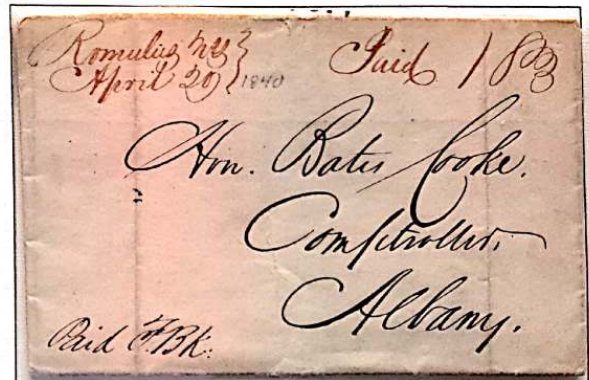 Romulus NY
April 20 1840
Paid 18¾
Hon. Bates Cooke.
Comptroller.
Albany.
Paid F. Bk.